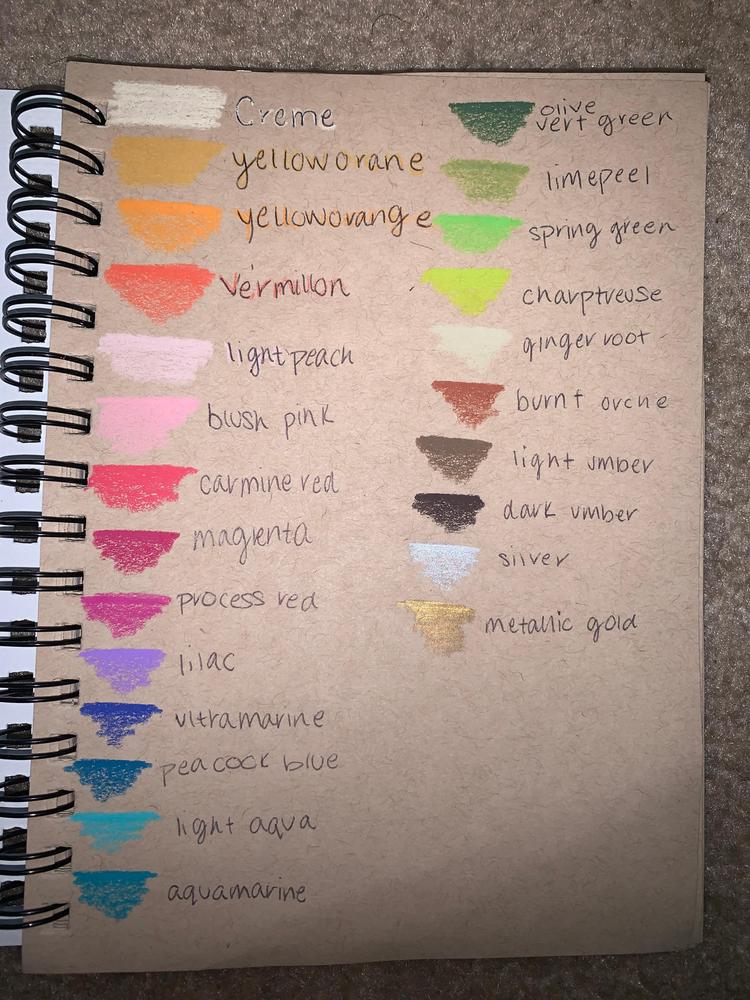 Creme
yelloworane
yelloworange
vermillon
light peach
blush pink
carmine red
magienta
process red
lilac
ultramarine
peacock blue
light aqua
aquamarine
olive
vert green
limepeel
spring green
charptreuse
ginger root
burnt ovcne
light umber
dark umber
silver
metallic gold